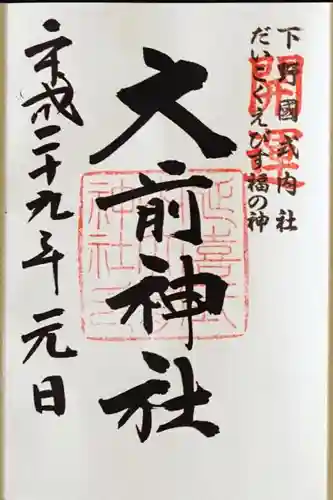 下野國式内社
だいこくえびす福の神
開運
大前神社
平成二十九年元日